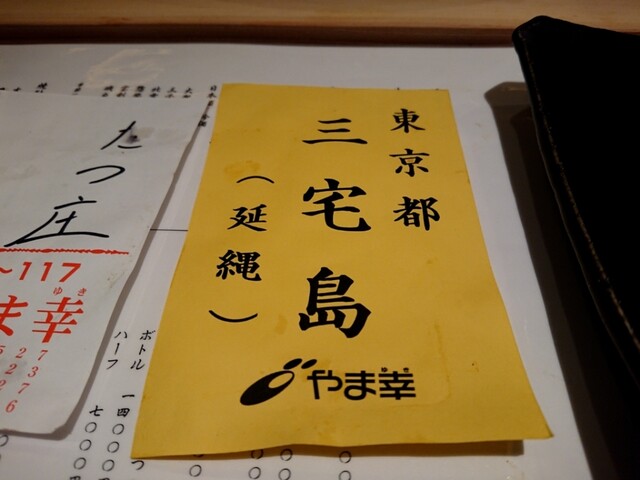 東京都
三宅島
（延縄）
やま幸
たつ庄
~117
ま幸
ゆき
ボトル
ハーフ